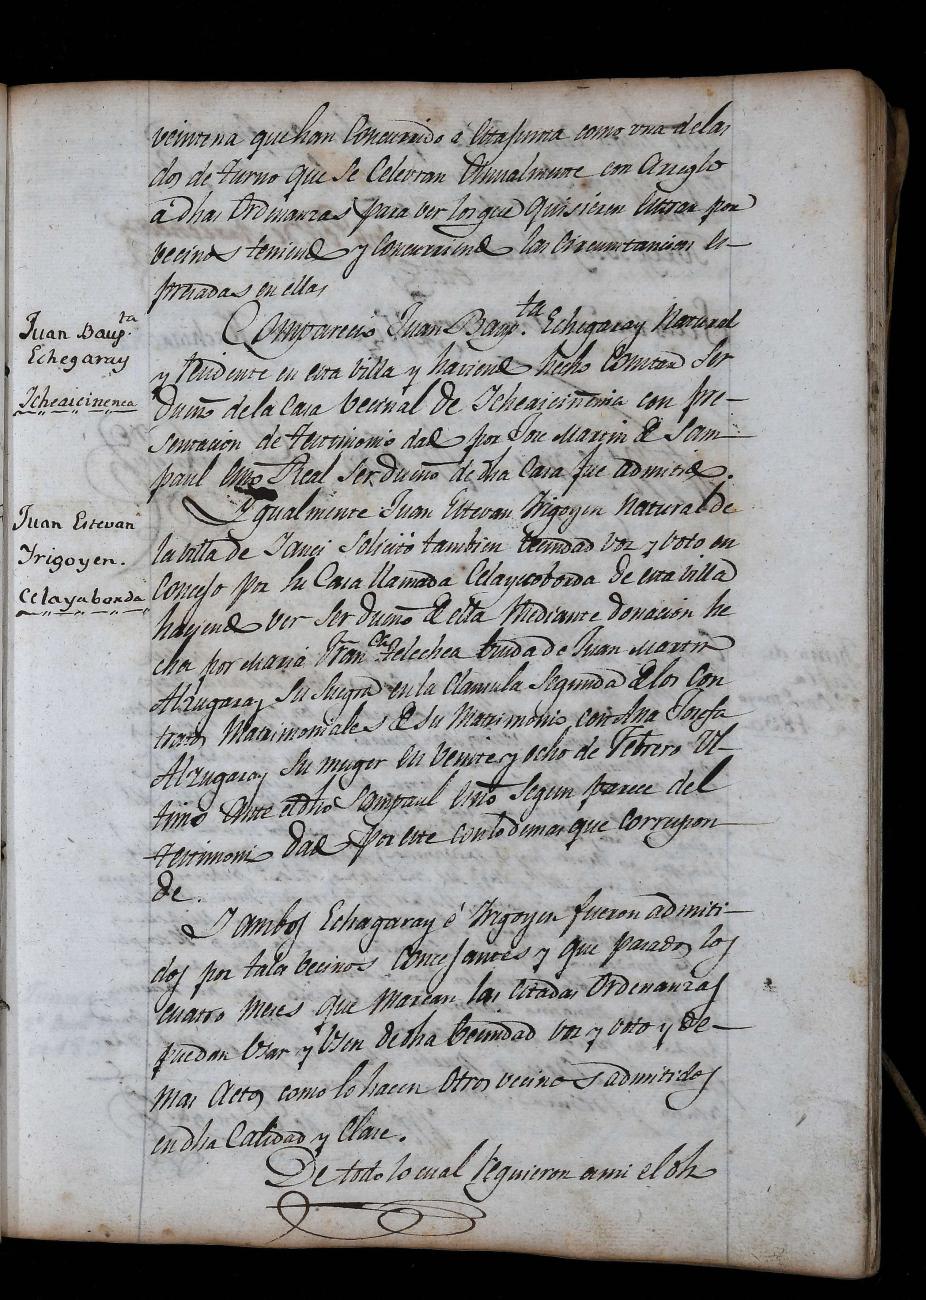 veintena que han Concurrido a esta junta como vna de las
dos de turno que se Celevran Anualmente con Areglo
a dhas Ordenanzas para ver los que quisieren Entrar por
vecinos teniendo y Concurriendo las circumtancias es-
presadas en ellas
Juan Baup.ta
Echegaray
Icheaicinenea
Comparecio Juan Bap.ta Echegaray Natural
y residente en esta villa y haziendo hecho constar ser
Dueño de la Casa Vecinal de Icheaicinenia con pre-
sentacion de testimonio dado por Jose Martin de Sam-
paul Esno Real ser dueño de dha Casa fue admitido.
Juan Estevan
Yrigoyen.
Celayaborda
Ygualmente Juan Estevan Yrigoyen Natural de
la villa de Yanci solicitó tambien Vecindad voz y voto en
Concejo por la Casa llamada Celayaborda de esta villa
haziendo ver ser dueño de ella Mediante donacion he
cha por Maria Fran.ca Telechea Viuda de Juan Martin
Alzugaray su suegra en la Clausula Segunda de los Con
tratos Matrimoniales de su Matrimonio con Ana Josefa
Alzugaray su muger en veinte y ocho de Febrero Ul-
timo Ante el dho Sampaul Esno segun parece del
testimonio dado por este con lo demas que correspon-
de.
Y ambos Echagaray é Yrigoyen fueron admiti-
dos por tales vecinos Concejantes y que pasados los
cuatro Meses que Marcan las Citadas Ordenanzas
puedan Vsar y Vsen de dha Vecindad voz y voto y de-
mas Actos como lo hacen Otros vecinos admitidos
en dha Calidad y Clase.
De todo lo cual Requieron a mi el Esno